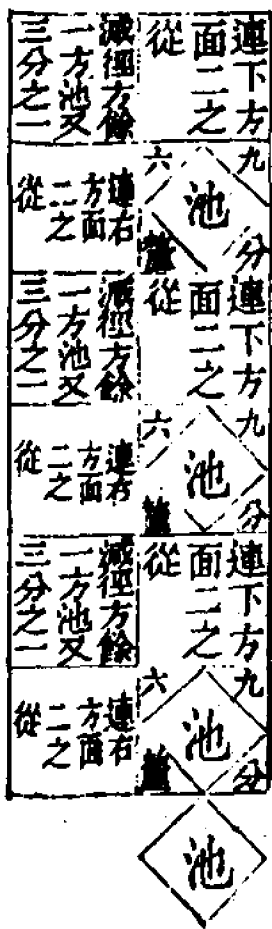 連下方
面二之
從
減徑方餘
一方池又
三分之一
九分
六釐
池
連右
方面
二之
從
連下方
面二之
從
減徑方餘
一方池又
三分之一
九分
六釐
池
連右
方面
二之
從
連下方
面二之
從
減徑方餘
一方池又
三分之一
九分
六釐
池
連右
方面
二之
從
池